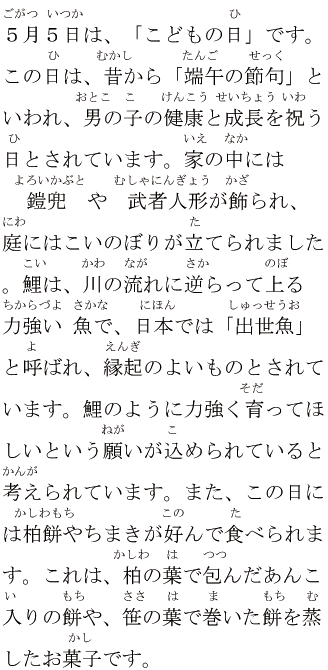 ごがつ いつか ひ
５月５日は、「こどもの日」です。
ひ むかし たんご せっく
この日は、昔から「端午の節句」と
おとこ こ けんこう せいちょう いわ
いわれ、男の子の健康と成長を祝う
ひ いえ なか
日とされています。家の中には
よろいかぶと むしゃにんぎょう かざ
鎧兜 や 武者人形が飾られ、
にわ た
庭にはこいのぼりが立てられました
こい かわ なが さか のぼ
。鯉は、川の流れに逆らって上る
ちからづよ さかな にほん しゅっせうお
力強い 魚で、日本では「出世魚」
よ えんぎ
と呼ばれ、縁起のよいものとされて
そだ
います。鯉のように力強く育ってほ
ねが こ
しいという願いが込められていると
かんが
考えられています。また、この日に
かしわもち この た
は柏餅やちまきが好んで食べられま
かしわ は つつ
す。これは、柏の葉で包んだあんこ
い もち ささ は ま もち む
入りの餅や、笹の葉で巻いた餅を蒸
かし
したお菓子です。